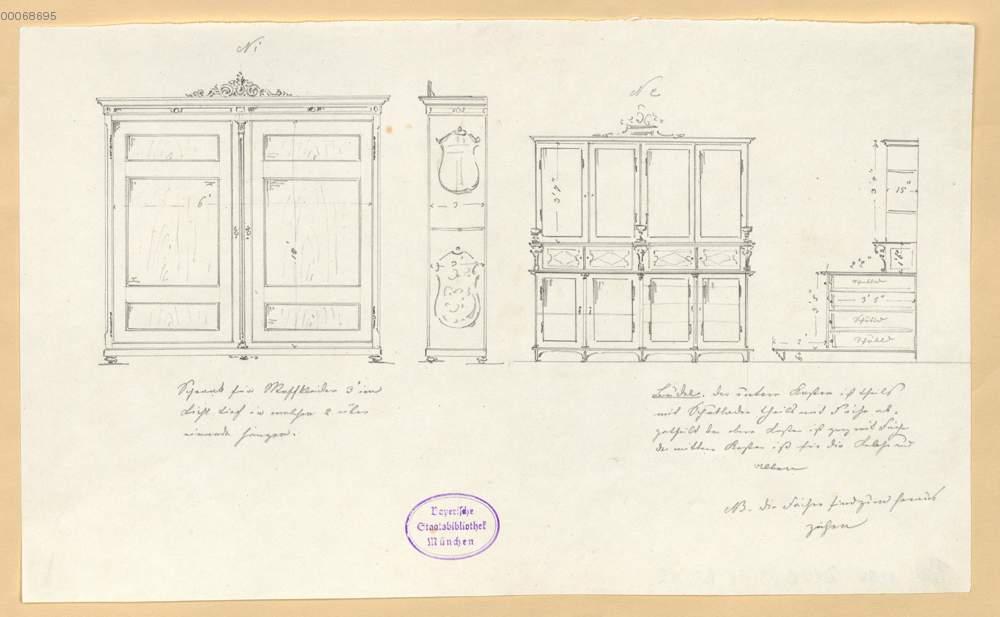 00068695
N 1
N 2
6'
3
3' 9"
15"
3' 9"
2' 2"
Schublad
3' 5"
3' 5"
Schubld
Schubld
2
Schrank für Meßkleider 3' im
Licht tief in welchen 2 über
einander hangen.
Büdel. der untere Kasten ist theils
mit Schubladen theils mit Fächer ab-
getheilt der obere Kasten ist ganz mit Fächer
der mittere Kasten ist für die Kelche und
Alben
NB. die Fächer sind zum heraus
ziehen
Bayerische
Staatsbibliothek
München